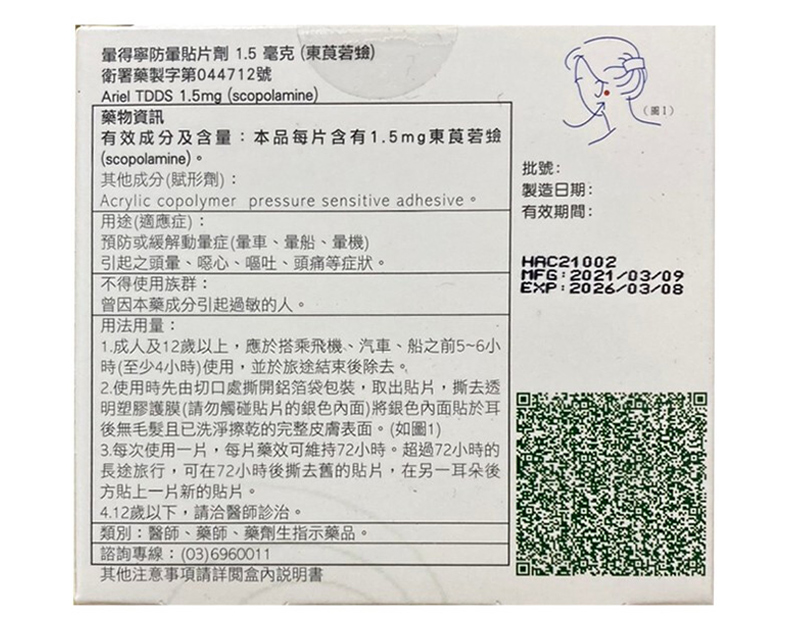 暈得寧防暈貼片劑 1.5 毫克 (東莨菪鹼)
衛署藥製字第044712號
Ariel TDDS 1.5mg (scopolamine)
藥物資訊
有效成分及含量：本品每片含有1.5mg東莨菪鹼
(scopolamine)。
其他成分(賦形劑)：
Acrylic copolymer pressure sensitive adhesive。
用途(適應症)：
預防或緩解動暈症(暈車、暈船、暈機)
引起之頭暈、噁心、嘔吐、頭痛等症狀。
不得使用族群：
曾因本藥成分引起過敏的人。
用法用量：
1.成人及12歲以上，應於搭乘飛機、汽車、船之前5~6小
時(至少4小時)使用，並於旅途結束後除去。
2.使用時先由切口處撕開鋁箔袋包裝，取出貼片，撕去透
明塑膠護膜(請勿觸碰貼片的銀色內面)將銀色內面貼於耳
後無毛髮且已洗淨擦乾的完整皮膚表面。(如圖1)
3.每次使用一片，每片藥效可維持72小時。超過72小時的
長途旅行，可在72小時後撕去舊的貼片，在另一耳朵後
方貼上一片新的貼片。
4.12歲以下，請洽醫師診治。
類別：醫師、藥師、藥劑生指示藥品。
諮詢專線：(03)6960011
其他注意事項請詳閱盒內說明書
(圖1)
批號：
製造日期：
有效期間：
HAC21002
MFG:2021/03/09
EXP:2026/03/08